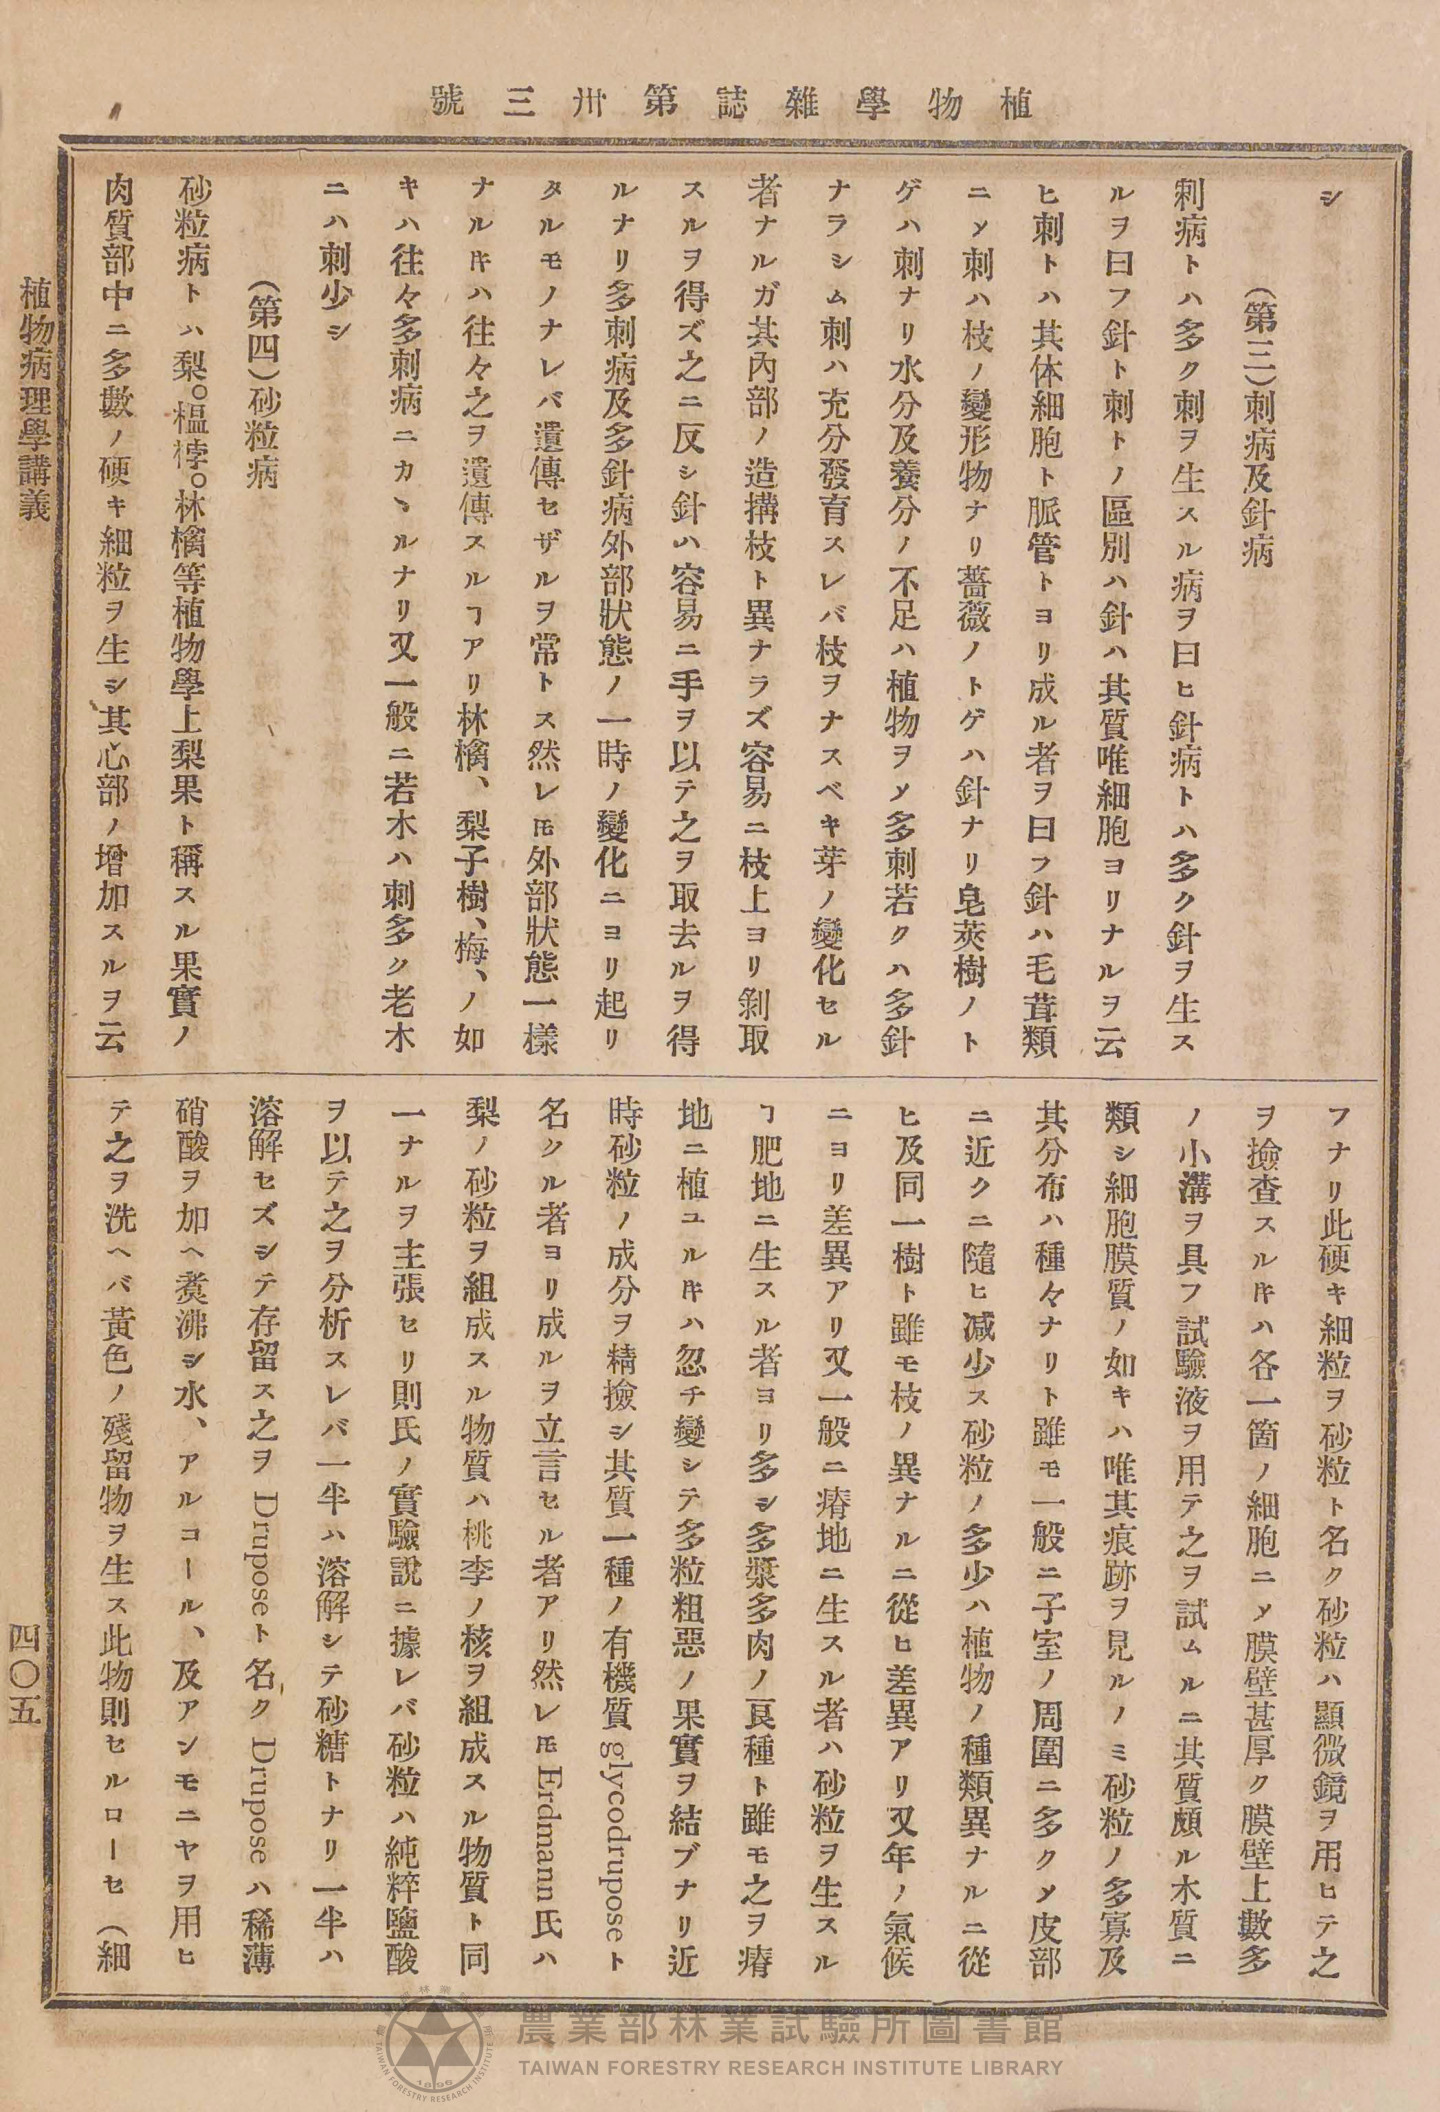 植物學雜誌第卅三號
シ
(第三)刺病及針病
刺病トハ多ク刺ヲ生スル病ヲ曰ヒ針病トハ多ク針ヲ生ス
ルヲ曰フ針ト刺トノ區別ハ針ハ其質唯細胞ヨリナルヲ云
ヒ刺トハ其体細胞ト脈管トヨリ成ル者ヲ曰フ針ハ毛茸類
ニメ刺ハ枝ノ變形物ナリ薔薇ノトゲハ針ナリ皂莢樹ノト
ゲハ刺ナリ水分及養分ノ不足ハ植物ヲメ多刺若クハ多針
ナラシム刺ハ充分發育スレバ枝ヲナスベキ芽ノ變化セル
者ナルガ其內部ノ造搆枝ト異ナラズ容易ニ枝上ヨリ剝取
スルヲ得ズ之ニ反シ針ハ容易ニ手ヲ以テ之ヲ取去ルヲ得
ルナリ多刺病及多針病外部狀態ノ一時ノ變化ニヨリ起リ
タルモノナレバ遺傳セザルヲ常トス然レ𪜈外部狀態一樣
ナルキハ往々之ヲ遺傳スルヿアリ林檎、梨子樹、梅、ノ如
キハ往々多刺病ニカヽルナリ又一般ニ若木ハ刺多ク老木
ニハ刺少シ
(第四)砂粒病
砂粒病トハ梨。榲桲。林檎等植物學上梨果ト稱スル果實ノ
肉質部中ニ多數ノ硬キ細粒ヲ生シ其心部ノ增加スルヲ云
フナリ此硬キ細粒ヲ砂粒ト名ク砂粒ハ顯微鏡ヲ用ヒテ之
ヲ撿查スルキハ各一箇ノ細胞ニメ膜壁甚厚ク膜壁上數多
ノ小溝ヲ具フ試驗液ヲ用テ之ヲ試ムルニ其質頗ル木質ニ
類シ細胞膜質ノ如キハ唯其痕跡ヲ見ルノミ砂粒ノ多寡及
其分布ハ種々ナリト雖モ一般ニ子室ノ周圍ニ多クメ皮部
ニ近クニ隨ヒ减少ス砂粒ノ多少ハ植物ノ種類異ナルニ從
ヒ及同一樹ト雖モ枝ノ異ナルニ從ヒ差異アリ又年ノ氣候
ニヨリ差異アリ又一般ニ瘠地ニ生スル者ハ砂粒ヲ生スル
ヿ肥地ニ生スル者ヨリ多シ多漿多肉ノ良種ト雖モ之ヲ瘠
地ニ植ユルキハ忽チ變シテ多粒粗惡ノ果實ヲ結ブナリ近
時砂粒ノ成分ヲ精撿シ其質一種ノ有機質 glycodrupose ト
名クル者ヨリ成ルヲ立言セル者アリ然レ𪜈 Erdmann 氏ハ
梨ノ砂粒ヲ組成スル物質ハ桃李ノ核ヲ組成スル物質ト同
一ナルヲ主張セリ則氏ノ實驗說ニ據レバ砂粒ハ純粹鹽酸
ヲ以テ之ヲ分析スレバ一半ハ溶解シテ砂糖トナリ一半ハ
溶解セズシテ存留ス之ヲ Drupose ト名ク Drupose ハ稀薄
硝酸ヲ加ヘ煑沸シ水、アルコール、及アンモニヤヲ用ヒ
テ之ヲ洗ヘバ黃色ノ殘留物ヲ生ス此物則セルローセ(細
植物病理學講義
四〇五
農業部林業試驗所圖書館
TAIWAN FORESTRY RESEARCH INSTITUTE LIBRARY
TAIWAN FORESTRY RESEARCH INSTITUTE
1896